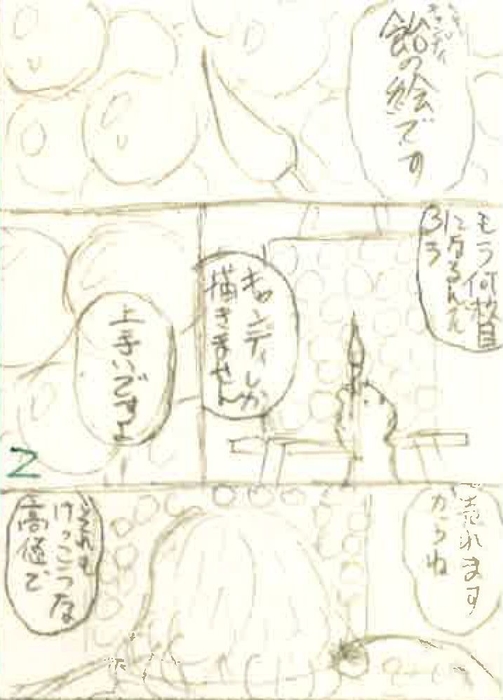 キャンディ
飴の絵です
もう何枚目
になるんだ
ろう
キャンディしか
描きません
上手いですよ
売れます
からね
それも
けっこうな
高値で
2